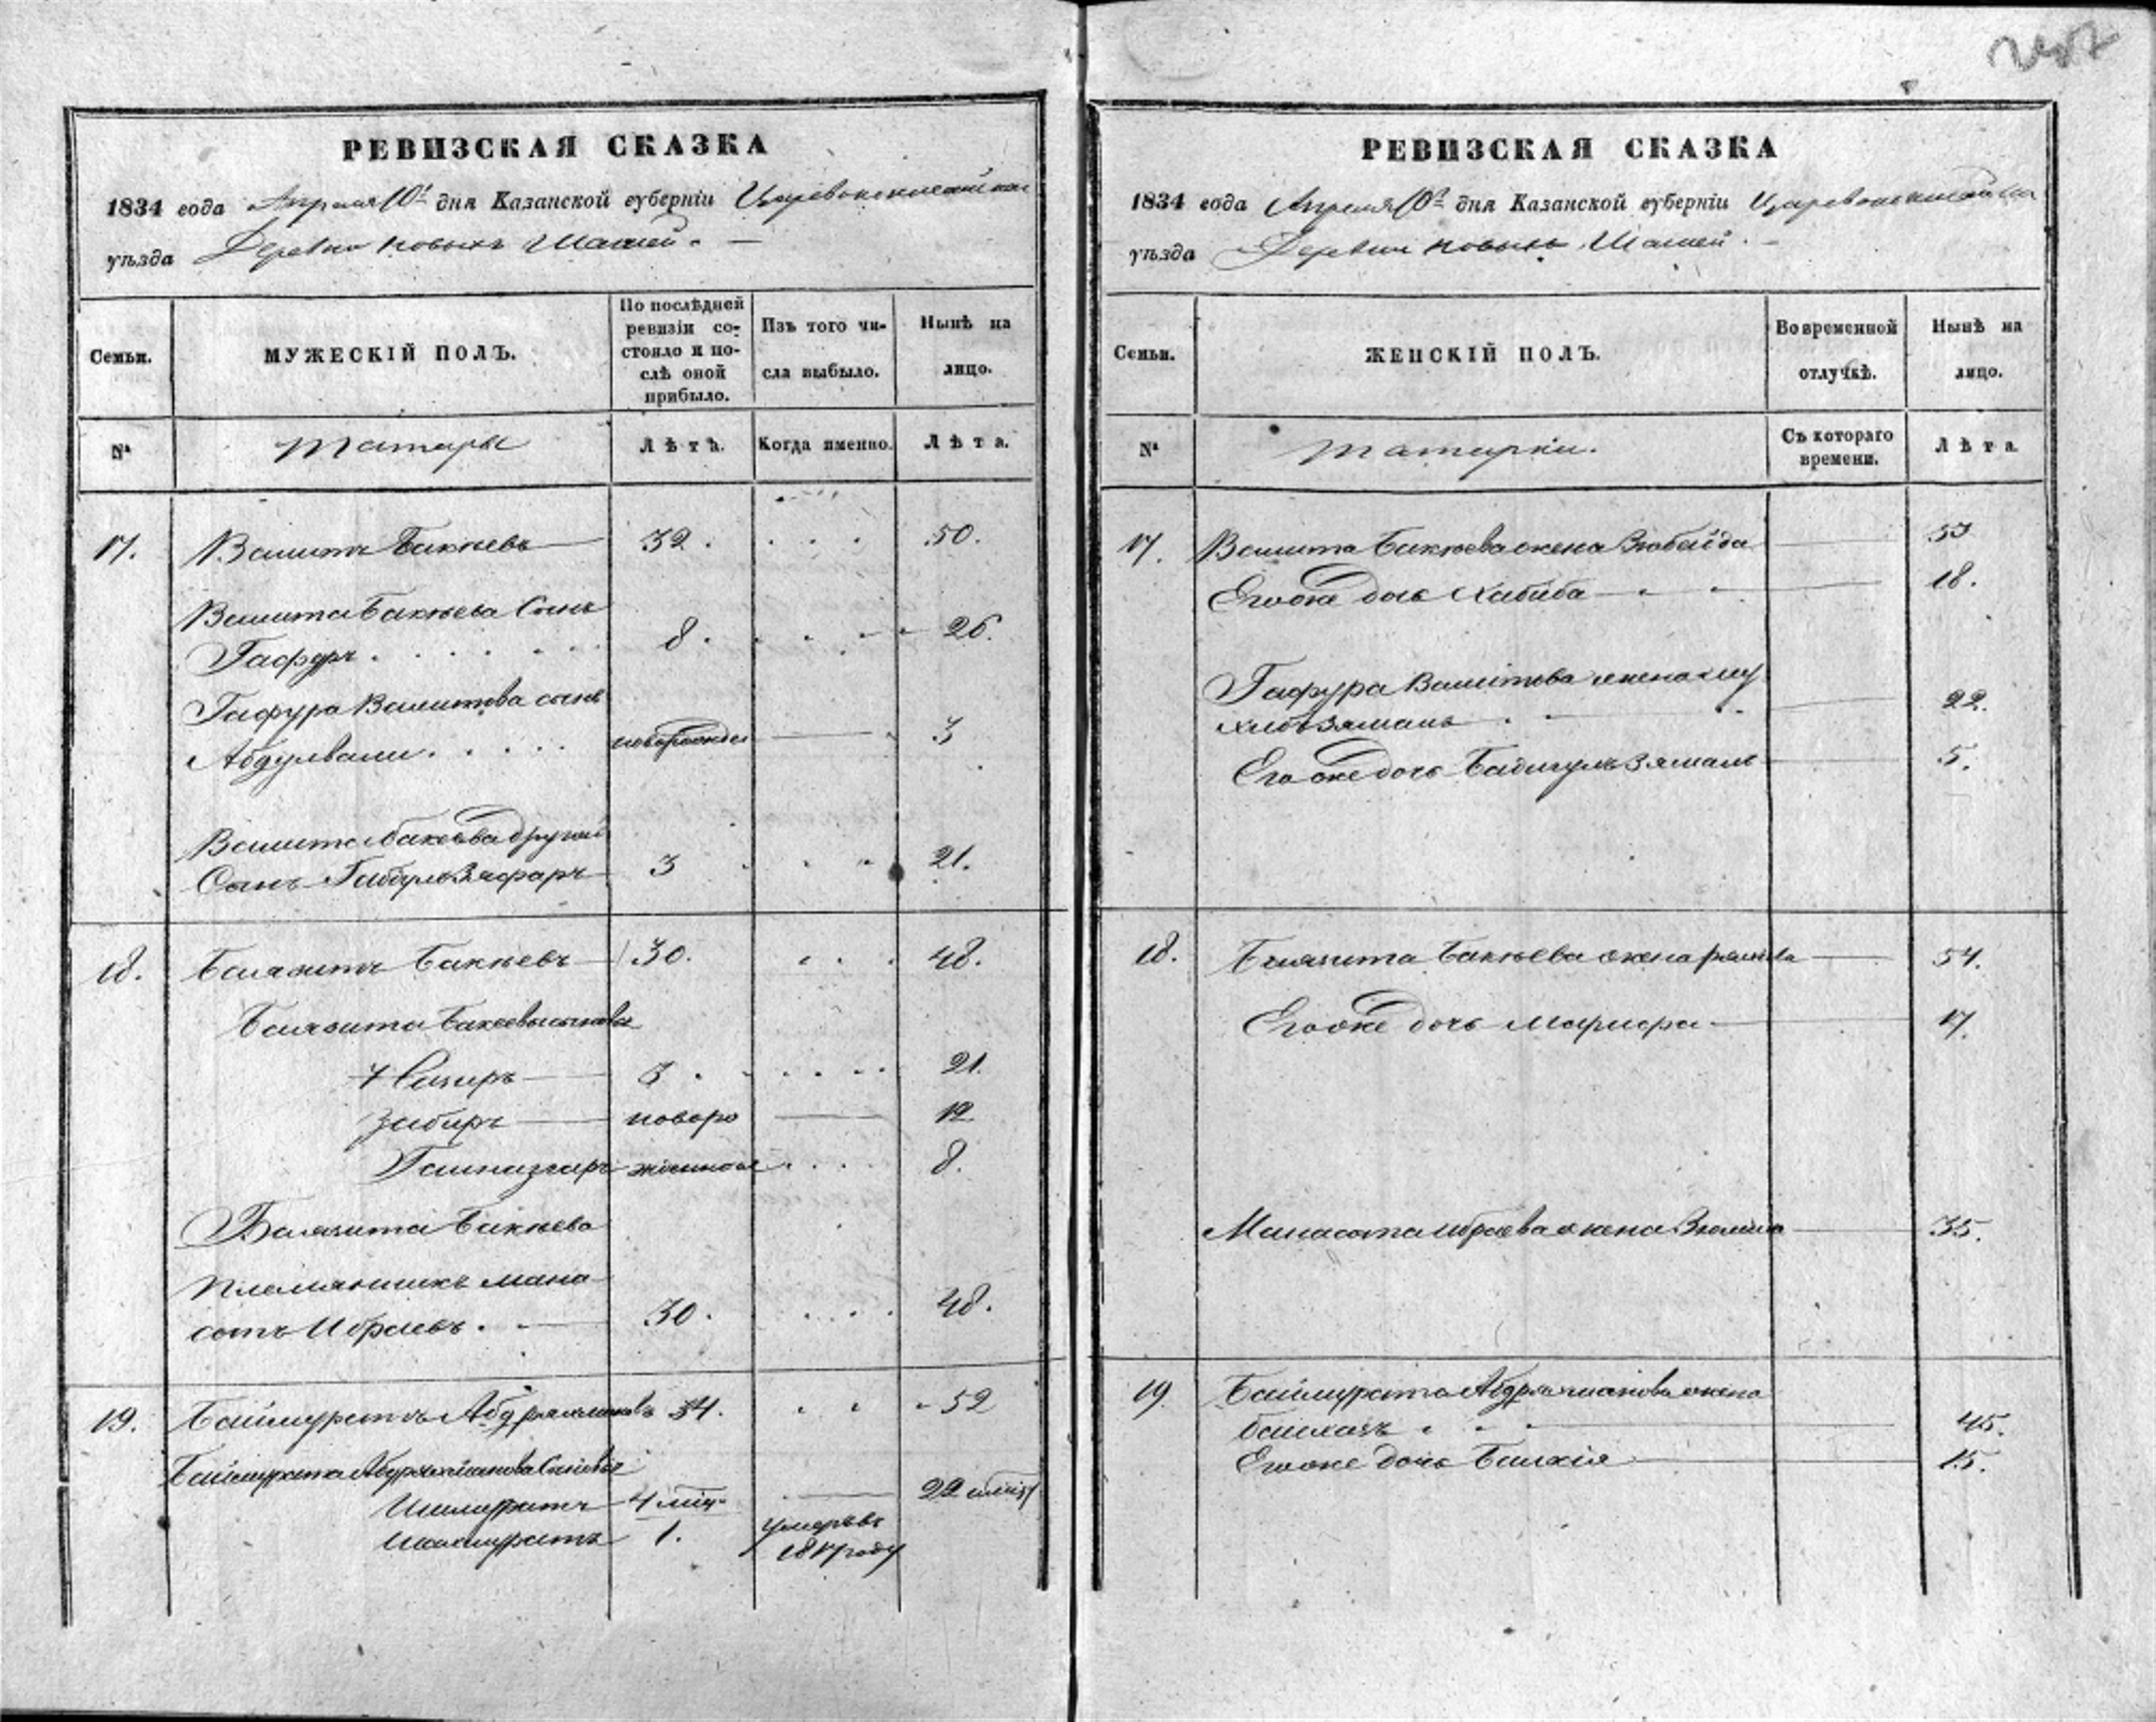 РЕВИЗСКАЯ СКАЗКА
1834 года Апреля 10го дня Казанской губерніи Царевококшайскаго
уѣзда Деревни новыхъ Шашей.
Семьи.
МУЖЕСКІЙ ПОЛЪ.
По послѣдней
ревизіи со-
стояло и по-
слѣ оной
прибыло.
Изъ того чи-
сла выбыло.
Нынѣ на
лицо.
№
Татары
Лѣта.
Когда именно.
Лѣта.
17. Вашитъ Бакѣевъ 32. 50.
Вашита Бакѣева Сынъ
Гафуръ 8. 26.
Гафура Вашитова сынъ
Абдулвали новорожден 3
Вашита Бакѣева другой
Сынъ Габулзяфаръ 3 21.
18. Баязитъ Бакѣевъ 30. 48.
Баязита Бакеева сыновья
Сагиръ 3. 21.
Забиръ новоро 12
жденные 8.
Баязита Бакѣева
Племянникъ мана
сыпъ Ибраевъ. 30. 48.
19. Баймуратъ Абдряхмановъ 34. 52
Баймурата Абдряхманова Сыновья
Ишмуратъ 4 мѣс.
Ишмуратъ 1. умеръ въ
1817 году
РЕВИЗСКАЯ СКАЗКА
1834 года Апреля 10го дня Казанской губерніи Царевококшайскаго
уѣзда Деревни новыхъ Шашей.
Семьи.
ЖЕНСКІЙ ПОЛЪ.
Во временной
отлучкѣ.
Нынѣ на
лицо.
№
Татарки.
Съ котораго
времени.
Лѣта.
17. Вашита Бакѣева жена Зюбейда 53
Его же дочь Хабиба 18.
Гафура Вашитова жена
22.
Его же дочь Бадигулзямаль 5.
18. Баязита Бакѣева жена 54.
Его же дочь Марифа 17.
Ибраева жена 35.
19. Баймурата Абдряхманова жена
45.
Его же дочь Балхія 15.